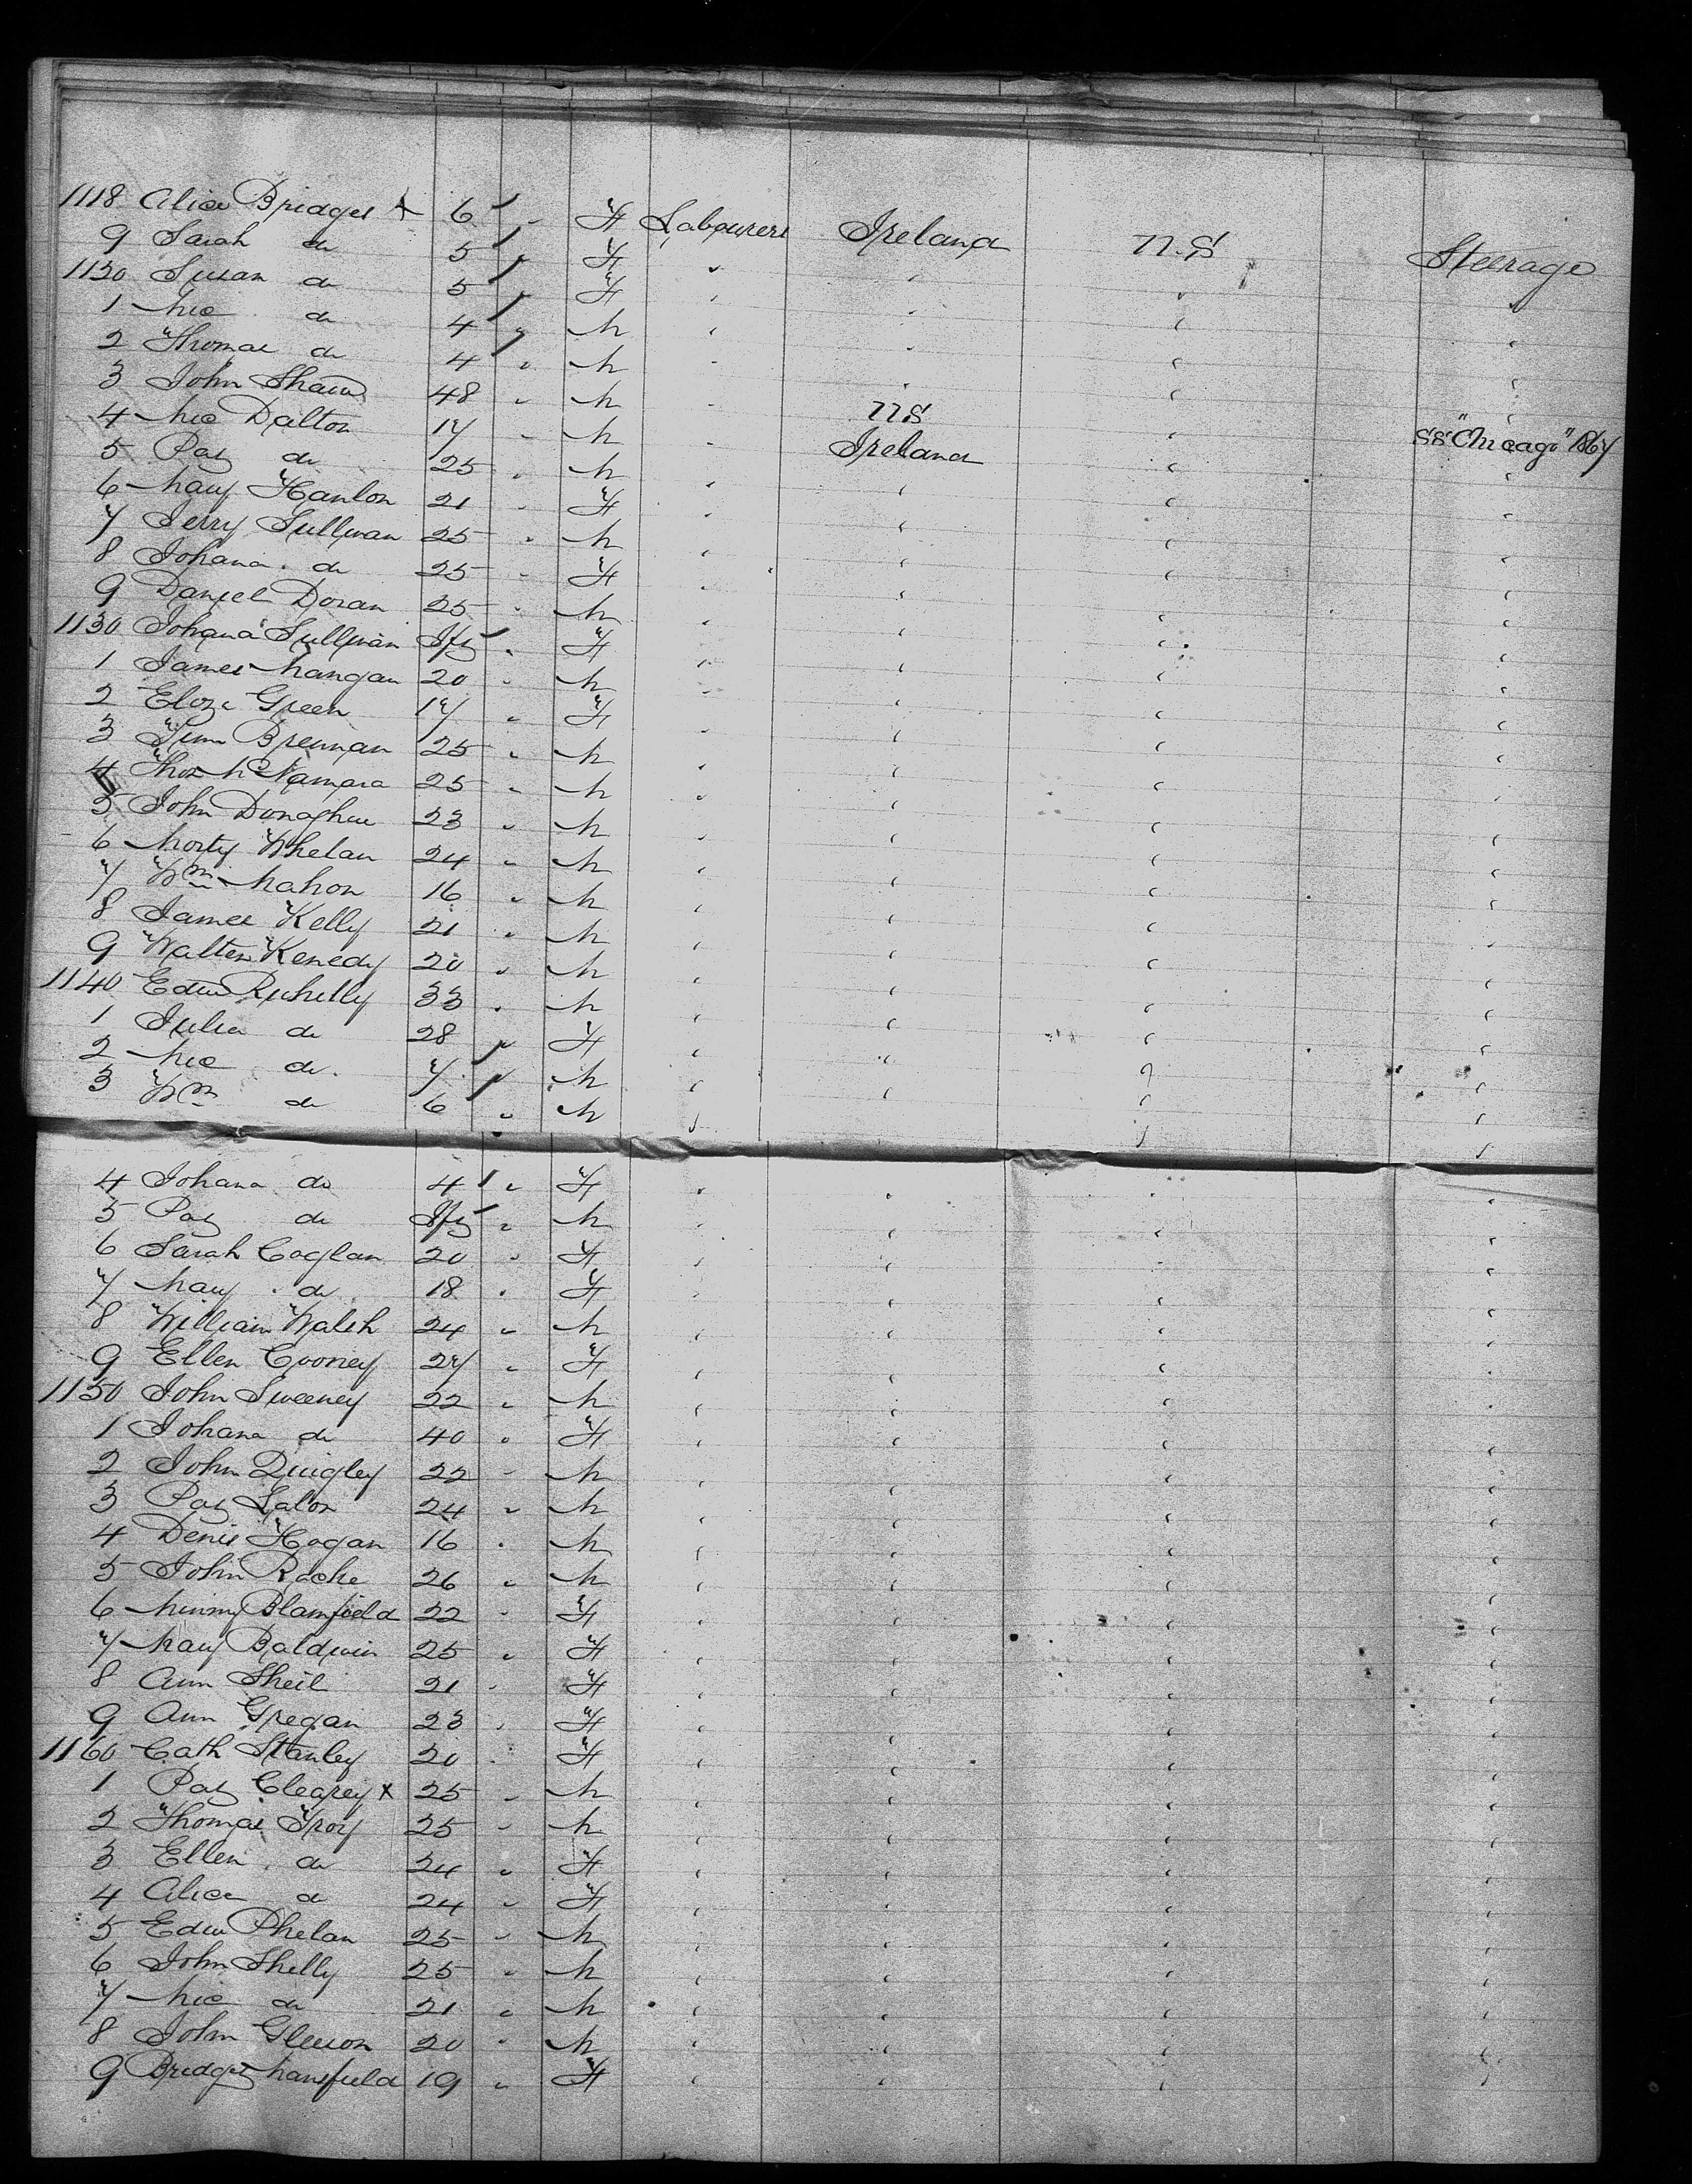 1118 Alice Bridges x 6 " F Labourers Ireland U.S Steerage
9 Sarah do 5 " F " " " "
1120 Susan do 5 " F " " " "
1 Mic do 4 " M " " " "
2 Thomas do 4 " M " " " "
3 John Shaw 48 " M " U.S " SS "Chicago" 1867
4 Mic Dalton 17 " M " Ireland " "
5 Pat do 25 " M " " " "
6 Mary Hanlon 21 " F " " " "
7 Jerry Sullivan 25 " M " " " "
8 Johana do 25 " F " " " "
9 Daniel Doran 25 " M " " " "
1130 Johana Sullivan Ify " F " " " "
1 James Mangan 20 " M " " " "
2 Eliza Green 17 " F " " " "
3 Tim Brennan 25 " M " " " "
4 Thos McNamara 25 " M " " " "
5 John Donaghue 23 " M " " " "
6 Morty Whelan 24 " M " " " "
7 Wm Mahon 16 " M " " " "
8 James Kelly 21 " M " " " "
9 Walter Kenedy 20 " M " " " "
1140 Edw 33 " M " " " "
1 Julia do 28 " F " " " "
2 Mic do 7 " M " " " "
3 Wm do 6 " M " " " "
4 Johana do 4 " F " " " "
5 Pat do Ify " M " " " "
6 Sarah Coglan 20 " F " " " "
7 Mary do 18 " F " " " "
8 William Walsh 24 " M " " " "
9 Ellen Cooney 27 " F " " " "
1150 John Sweeney 22 " M " " " "
1 Johana do 40 " F " " " "
2 John Quigley 22 " M " " " "
3 Pat Lalor 24 " M " " " "
4 Denis Hogan 16 " M " " " "
5 John Roche 26 " M " " " "
6 Minny Blamfield 22 " F " " " "
7 Mary Baldwin 25 " F " " " "
8 Ann Sheil 21 " F " " " "
9 Ann Gregan 23 " F " " " "
1160 Cath Stanley 20 " F " " " "
1 Pat Clearey x 25 " M " " " "
2 Thomas Troy 25 " M " " " "
3 Ellen do 24 " F " " " "
4 Alice do 24 " F " " " "
5 Edw Phelan 25 " M " " " "
6 John Shelly 25 " M " " " "
7 Mic do 21 " M " " " "
8 John Gleeson 20 " M " " " "
9 Bridget Mansfield 19 " F " " " "